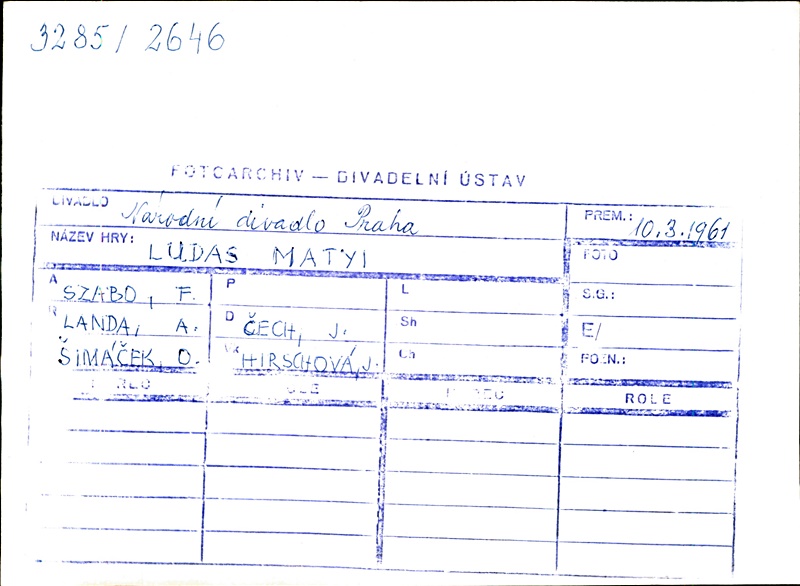 3285/ 2646
FOTOARCHIV — DIVADELNÍ ÚSTAV
DIVADLO Národní divadlo Praha
PREM.: 10.3.1961
NÁZEV HRY: LUDAS MATYI
FOTO
A SZABO, F.
P
L
S.G.:
R LANDA, A.
D ČECH, J.
Sh
E/
ŠIMÁČEK, O.
VK HIRSCHOVÁ, J.
Ch
ROLE